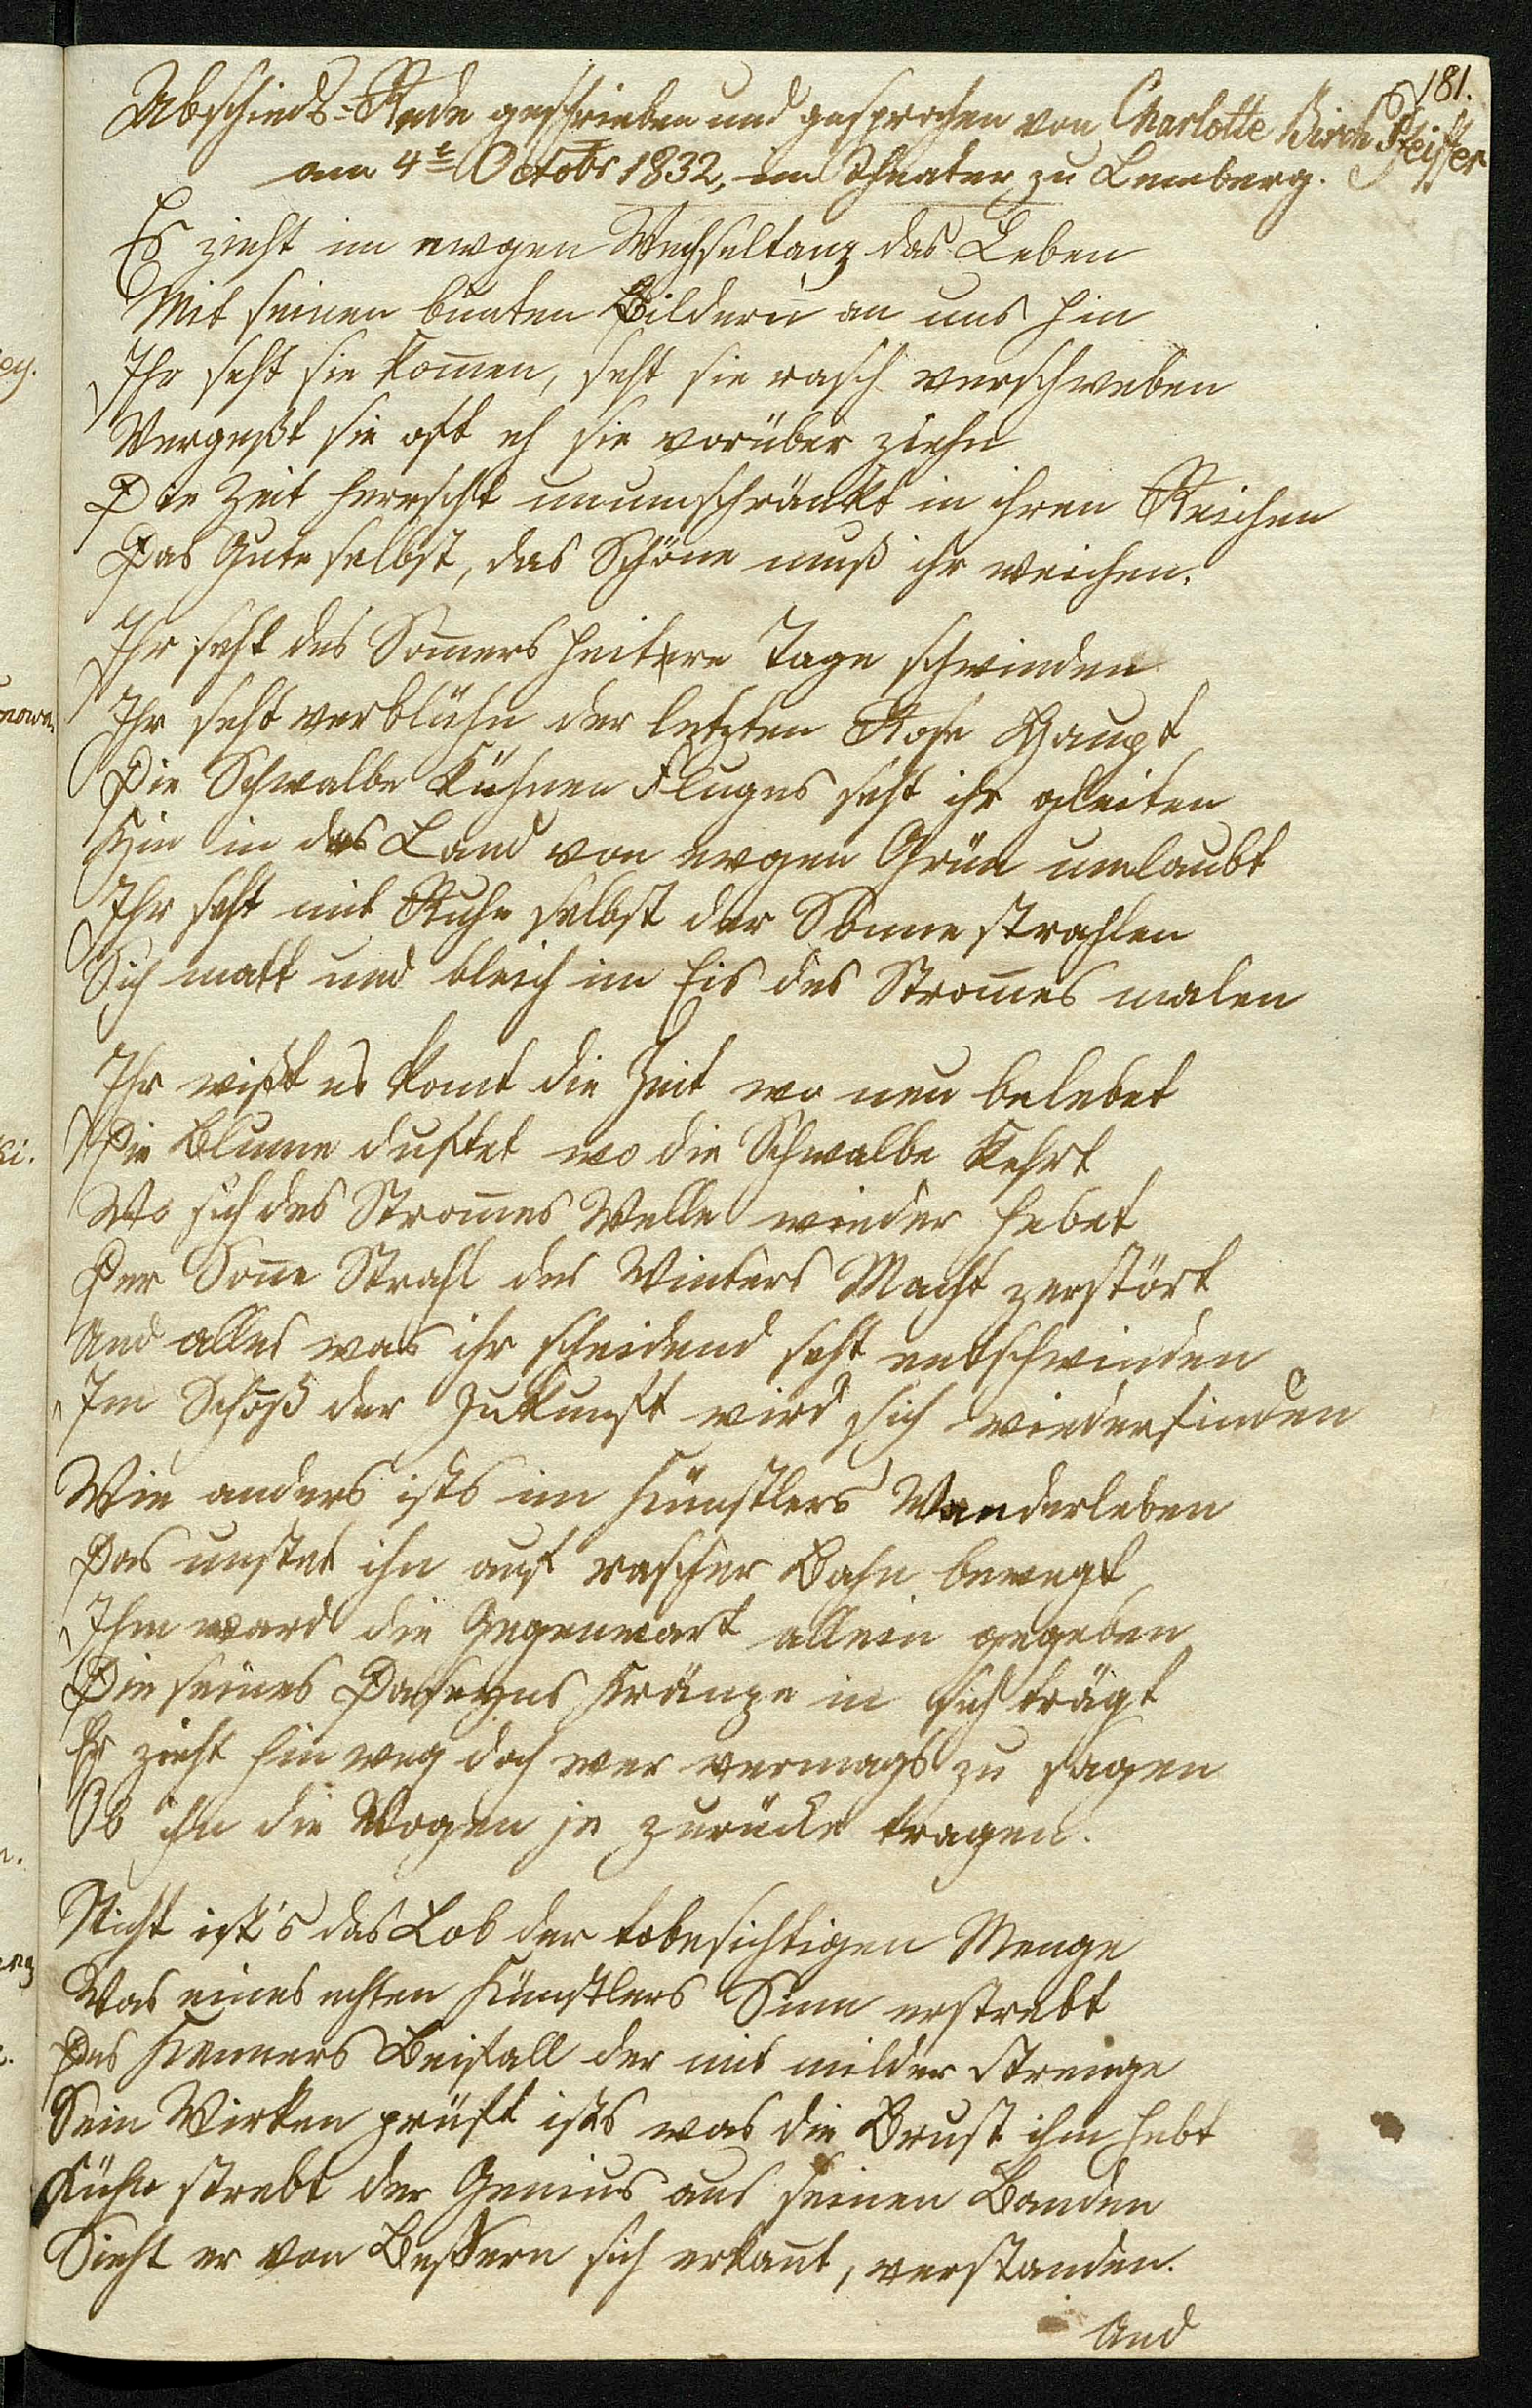 181.
Abschieds-Rede geschrieben und gesprochen von Charlotte Birch Pfeiffer
am 4t Octobr 1832, im Theater zu Lemberg.
Es zieht im ewgen Wechseltanz das Leben
Mit seinen bunten Bildern an uns hin
Ihr seht sie kom̄en, seht sie rasch verschweben
Vergeßt sie oft eh sie vorüber ziehn
Die Zeit herrscht unumschränkt in ihren Reichen
Das Gute selbst, das Schöne muß ihr weichen.
Ihr seht des Som̄ers heitere Tage schwinden
Ihr seht verblühn der letzten Rose Haupt
Die Schwalbe kühnen Fluges seht ihr gleiten
Hin in das Land von ewgen Grün umlaubt
Ihr seht mit Ruhe selbst der Sonne strahlen
Sich matt und bleich im Eis des Strom̄es malen
Ihr wißt es kom̄t die Zeit wo neu belebet
Die Blume duftet wo die Schwalbe kehrt
Wo sich des Strom̄es Welle wieder hebet
Der Son̄e Strahl des Winters Macht zerstört
Und alles was ihr scheidend seht entschwinden
Im Schoß der Zukunft wird sich wiederfinden
Wie anders ists im Künstlers Wanderleben
Das unstet ihn auf rascher Bahn bewegt
Ihm ward die Gegenwart allein gegeben
Die seines Daseyns Kränze in sich trägt
Er zieht hin weg doch wer vermags zu sagen
Ob ihn die Wogen je zurücke tragen.
Nicht ist's das Lob der tobesichtigen Menge
Was eines echten Künstlers Sinn erstrebt
Des Kenners Beifall der mit milder Strenge
Sein Wirken prüft ists was die Brust ihm hebt
Kühn strebt der Genius aus seinen Banden
Sieht er von Bessern sich erkan̄t, verstanden.
Und